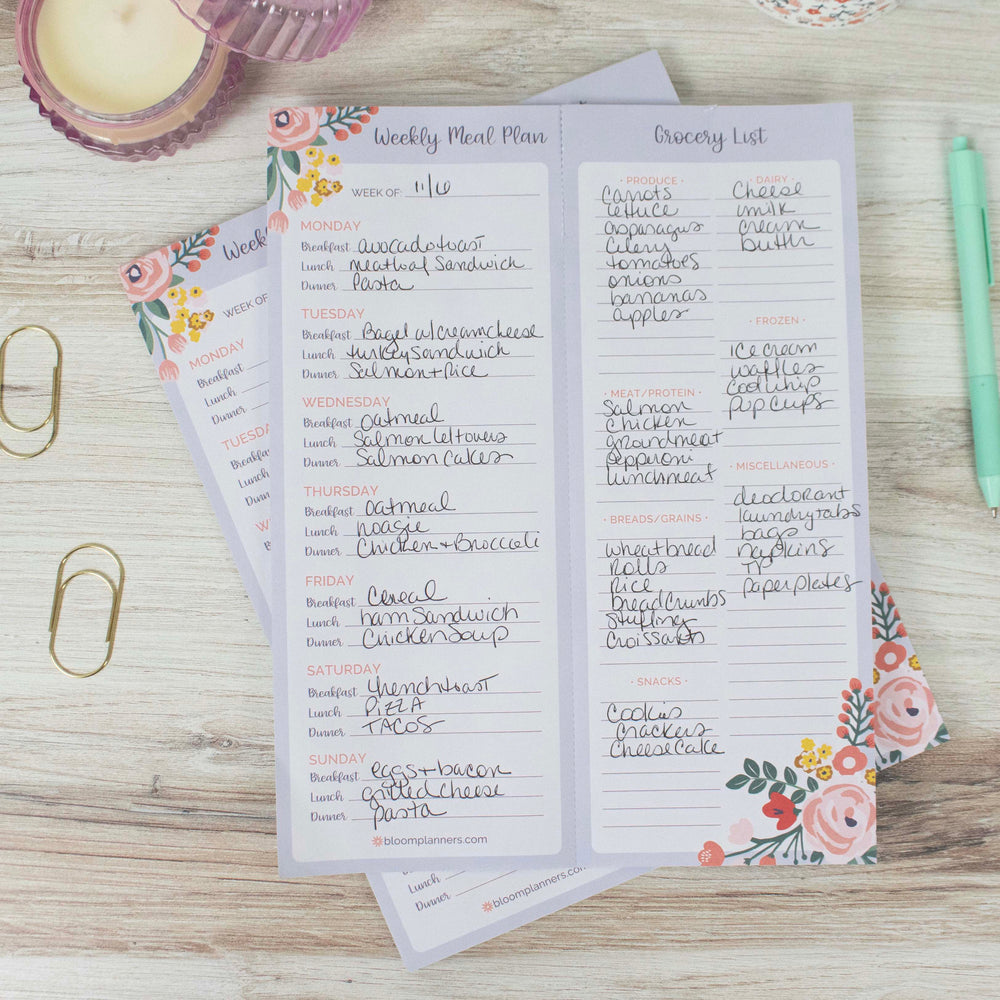 Weekly Meal Plan
WEEK OF: 11/6
MONDAY
Breakfast avocado toast
Lunch meatloaf Sandwich
Dinner Pasta
TUESDAY
Breakfast Bagel w/creamcheese
Lunch turkey Sandwich
Dinner Salmon + Rice
WEDNESDAY
Breakfast oatmeal
Lunch Salmon leftovers
Dinner Salmon cakes
THURSDAY
Breakfast oatmeal
Lunch hoagie
Dinner Chicken + Broccoli
FRIDAY
Breakfast Cereal
Lunch ham Sandwich
Dinner Chicken Soup
SATURDAY
Breakfast french toast
Lunch PIZZA
Dinner TACOS
SUNDAY
Breakfast eggs + bacon
Lunch grilled cheese
Dinner pasta
bloomplanners.com
Grocery List
• PRODUCE •
Carrots
lettuce
asparagus
Celery
tomatoes
onions
bananas
apples
• MEAT/PROTEIN •
Salmon
Chicken
groundmeat
pepperoni
lunchmeat
• BREADS/GRAINS •
wheat bread
Rolls
Rice
bread crumbs
stuffing
Croissants
• SNACKS •
Cookies
Crackers
Cheese Cake
• DAIRY •
Cheese
milk
cream
butter
• FROZEN •
ice cream
waffles
cool whip
pup cups
• MISCELLANEOUS •
deodorant
laundry tabs
bags
napkins
TP
paper plates
Weekl
WEEK OF
MONDAY
Breakfast
Lunch
Dinner
TUESDA
Breakfa
Lunch
Dinn
WE
Lunch
Dinner
bloomplanners.com